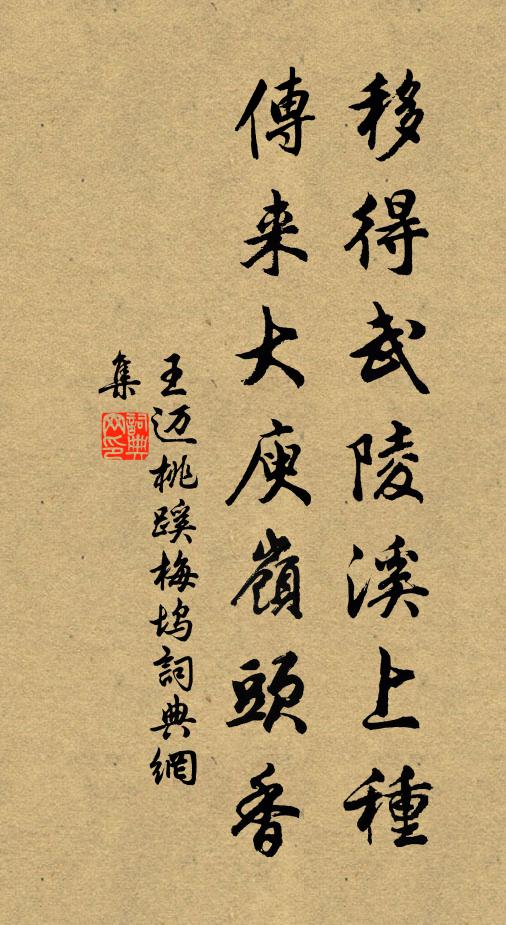 移得武陵溪上種
傳来大庾嶺頭香
王迈桃蹊梅坞詞典網
集
詞典網印